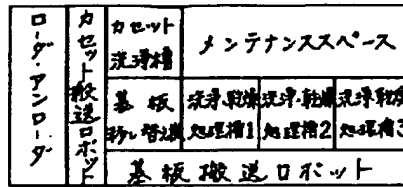 ローダ・アンローダ
カセット搬送ロボット
カセット
洗浄槽
メンテナンススペース
基板
移し替え機
洗浄・乾燥
処理槽1
洗浄・乾燥
処理槽2
洗浄・乾燥
処理槽3
基板搬送ロボット